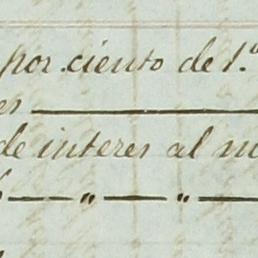 por ciento de 1.º
es
de interes al
" "